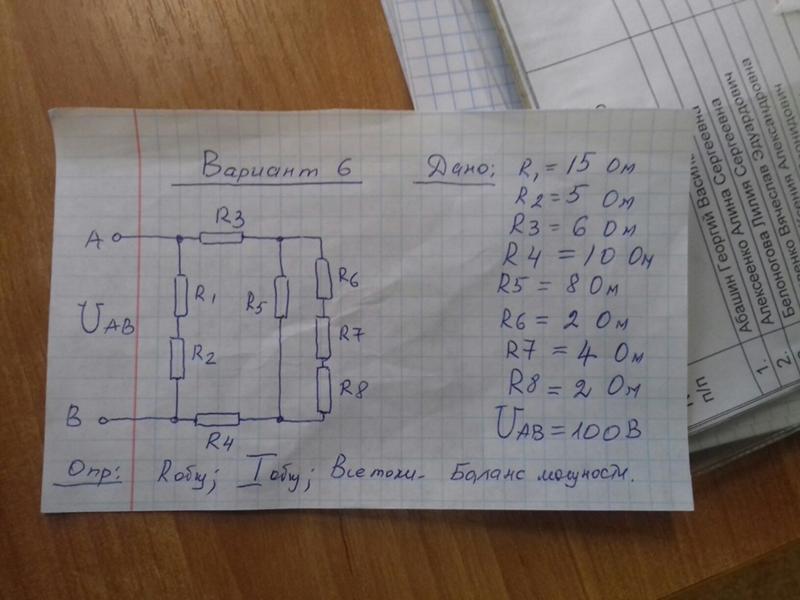 Вариант 6
Дано:
R1 = 15 Ом
R2 = 5 Ом
R3 = 6 Ом
R4 = 10 Ом
R5 = 8 Ом
R6 = 2 Ом
R7 = 4 Ом
R8 = 2 Ом
UAB = 100 В
A
R3
R1
R5
R6
UAB
R2
R7
R8
B
R4
Опр: Rобщ; Iобщ; Все токи- Баланс мощности.
п/п
1.
2.
Абашин Георгий
Алексеенко Алина Сергеевна
Алексеенко Лилия Сергеевна
Белоногова Вячеслав Эдуардович
Александровна